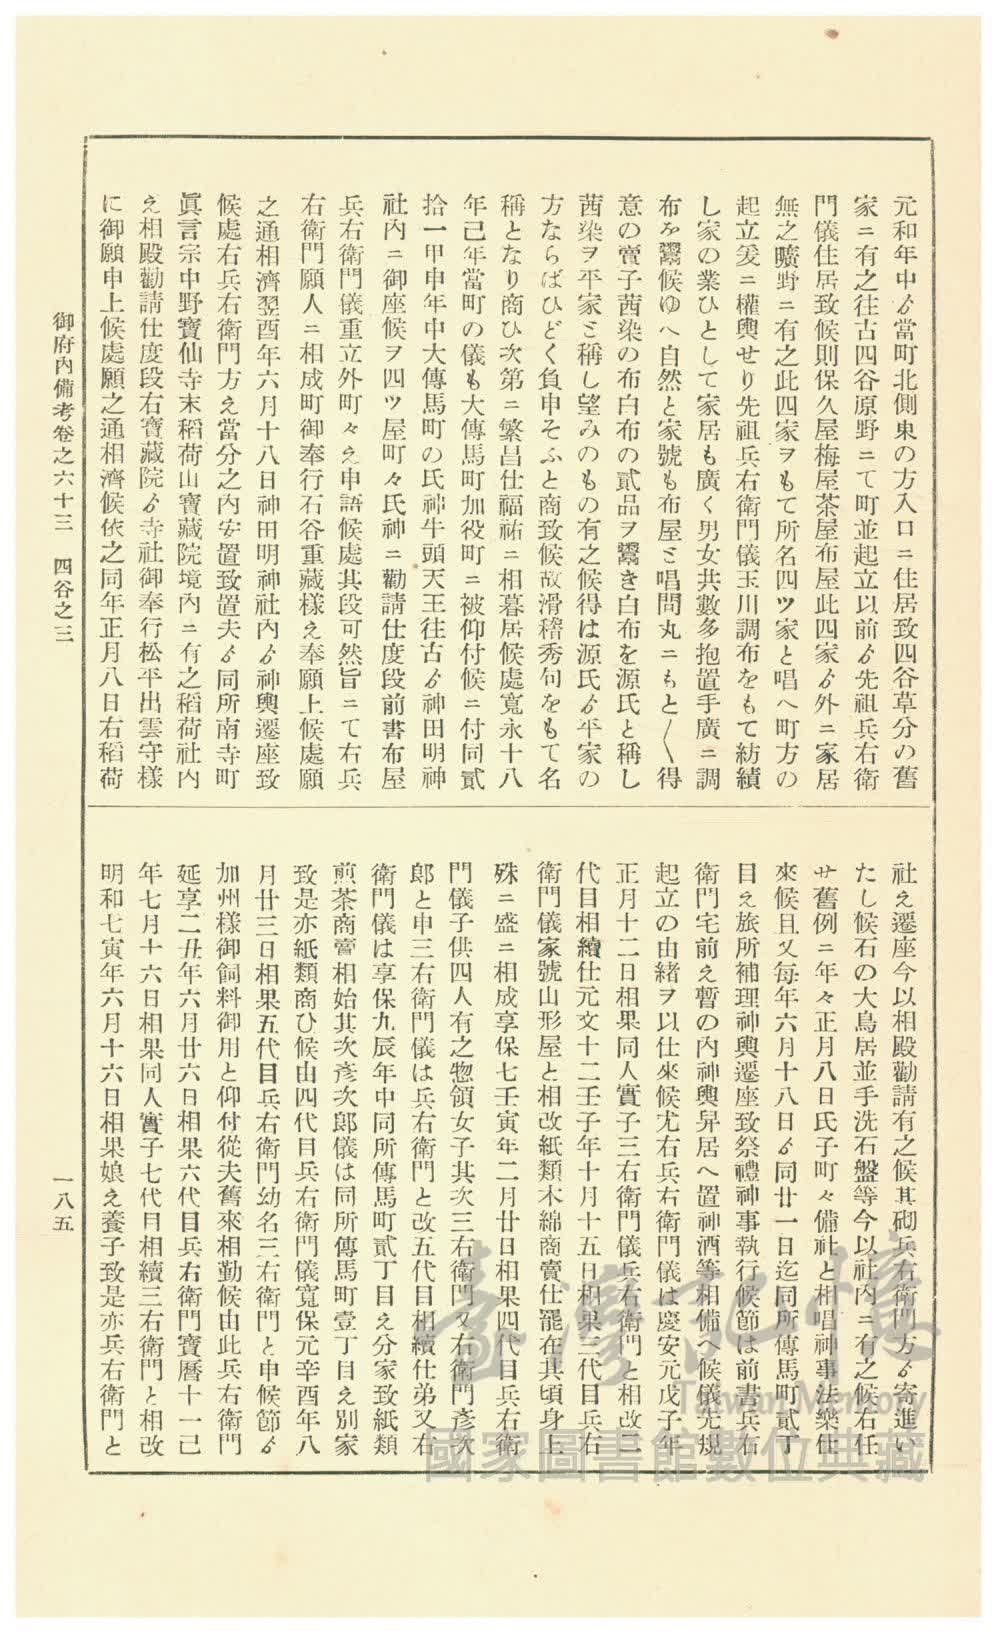 元和年中ゟ當町北側東の方入口ニ住居致四谷草分の舊
家ニ有之往古四谷原野ニて町並起立以前ゟ先祖兵右衛
門儀住居致候則保久屋梅屋茶屋布屋此四家ゟ外ニ家居
無之曠野ニ有之此四家ヲもて所名四ツ家と唱へ町方の
起立爰ニ權輿せり先祖兵右衛門儀玉川調布をもて紡績
し家の業ひとして家居も廣く男女共數多抱置手廣ニ調
布を鬻候ゆへ自然と家號も布屋と唱問丸ニもと〱得
意の賣子茜染の布白布の貳品ヲ鬻き白布を源氏と稱し
茜染ヲ平家と稱し望みのもの有之候得は源氏ゟ平家の
方ならばひどく負申そふと商致候故滑稽秀句をもて名
稱となり商ひ次第ニ繁昌仕福祐ニ相暮居候處寬永十八
年己年當町の儀も大傳馬町加役町ニ被仰付候ニ付同貳
拾一甲申年中大傳馬町の氏神牛頭天王往古ゟ神田明神
社内ニ御座候ヲ四ツ屋町々氏神ニ勸請仕度段前書布屋
兵右衛門儀重立外町々え申語候處其段可然旨ニて右兵
右衛門願人ニ相成町御奉行石谷重藏樣え奉願上候處願
之通相濟翌酉年六月十八日神田明神社內ゟ神輿遷座致
候處右兵右衛門方え當分之內安置致置夫ゟ同所南寺町
眞言宗中野寶仙寺末稻荷山寶藏院境內ニ有之稻荷社內
え相殿勸請仕度段右寶藏院ゟ寺社御奉行松平出雲守樣
に御願申上候處願之通相濟候依之同年正月八日右稻荷
社え遷座今以相殿勸請有之候其砌兵右衛門方ゟ寄進い
たし候石の大鳥居並手洗石盤等今以社內ニ有之候右任
せ舊例ニ年々正月八日氏子町々備社と相唱神事法樂仕
來候且又每年六月十八日ゟ同廿一日迄同所傳馬町貳丁
目え旅所補理神輿遷座致祭禮神事執行候節は前書兵右
衛門宅前え暫の內神輿舁居へ置神酒等相備へ候儀先規
起立の由緖ヲ以仕來候尤右兵右衛門儀は慶安元戊子年
正月十二日相果同人實子三右衛門儀兵右衛門と相改二
代目相續仕元文十二壬子年十月十五日相果三代目兵右
衛門儀家號山形屋と相改紙類木綿商賣仕罷在其頃身上
殊ニ盛ニ相成享保七壬寅年二月廿日相果四代目兵右衛
門儀子供四人有之惣領女子其次三右衛門又右衛門彥次
郞と申三右衛門儀は兵右衛門と改五代目相續仕弟又右
衛門儀は享保九辰年中同所傳馬町貳丁目え分家致紙類
煎茶商賣相始其次彥次郞儀は同所傳馬町壹丁目え別家
致是亦紙類商ひ候由四代目兵右衛門儀寬保元辛酉年八
月廿三日相果五代目兵右衛門幼名三右衛門と申候節ゟ
加州樣御飼料御用と仰付從夫舊來相勤候由此兵右衛門
延享二丑年六月廿六日相果六代目兵右衛門寶曆十一己
年七月十六日相果同人實子七代目相續三右衛門と相改
明和七寅年六月十六日相果娘え養子致是亦兵右衛門と
御府內備考卷之六十三　四谷之三
一八五
臺灣記憶
Taiwan Memory
國家圖書館數位典藏